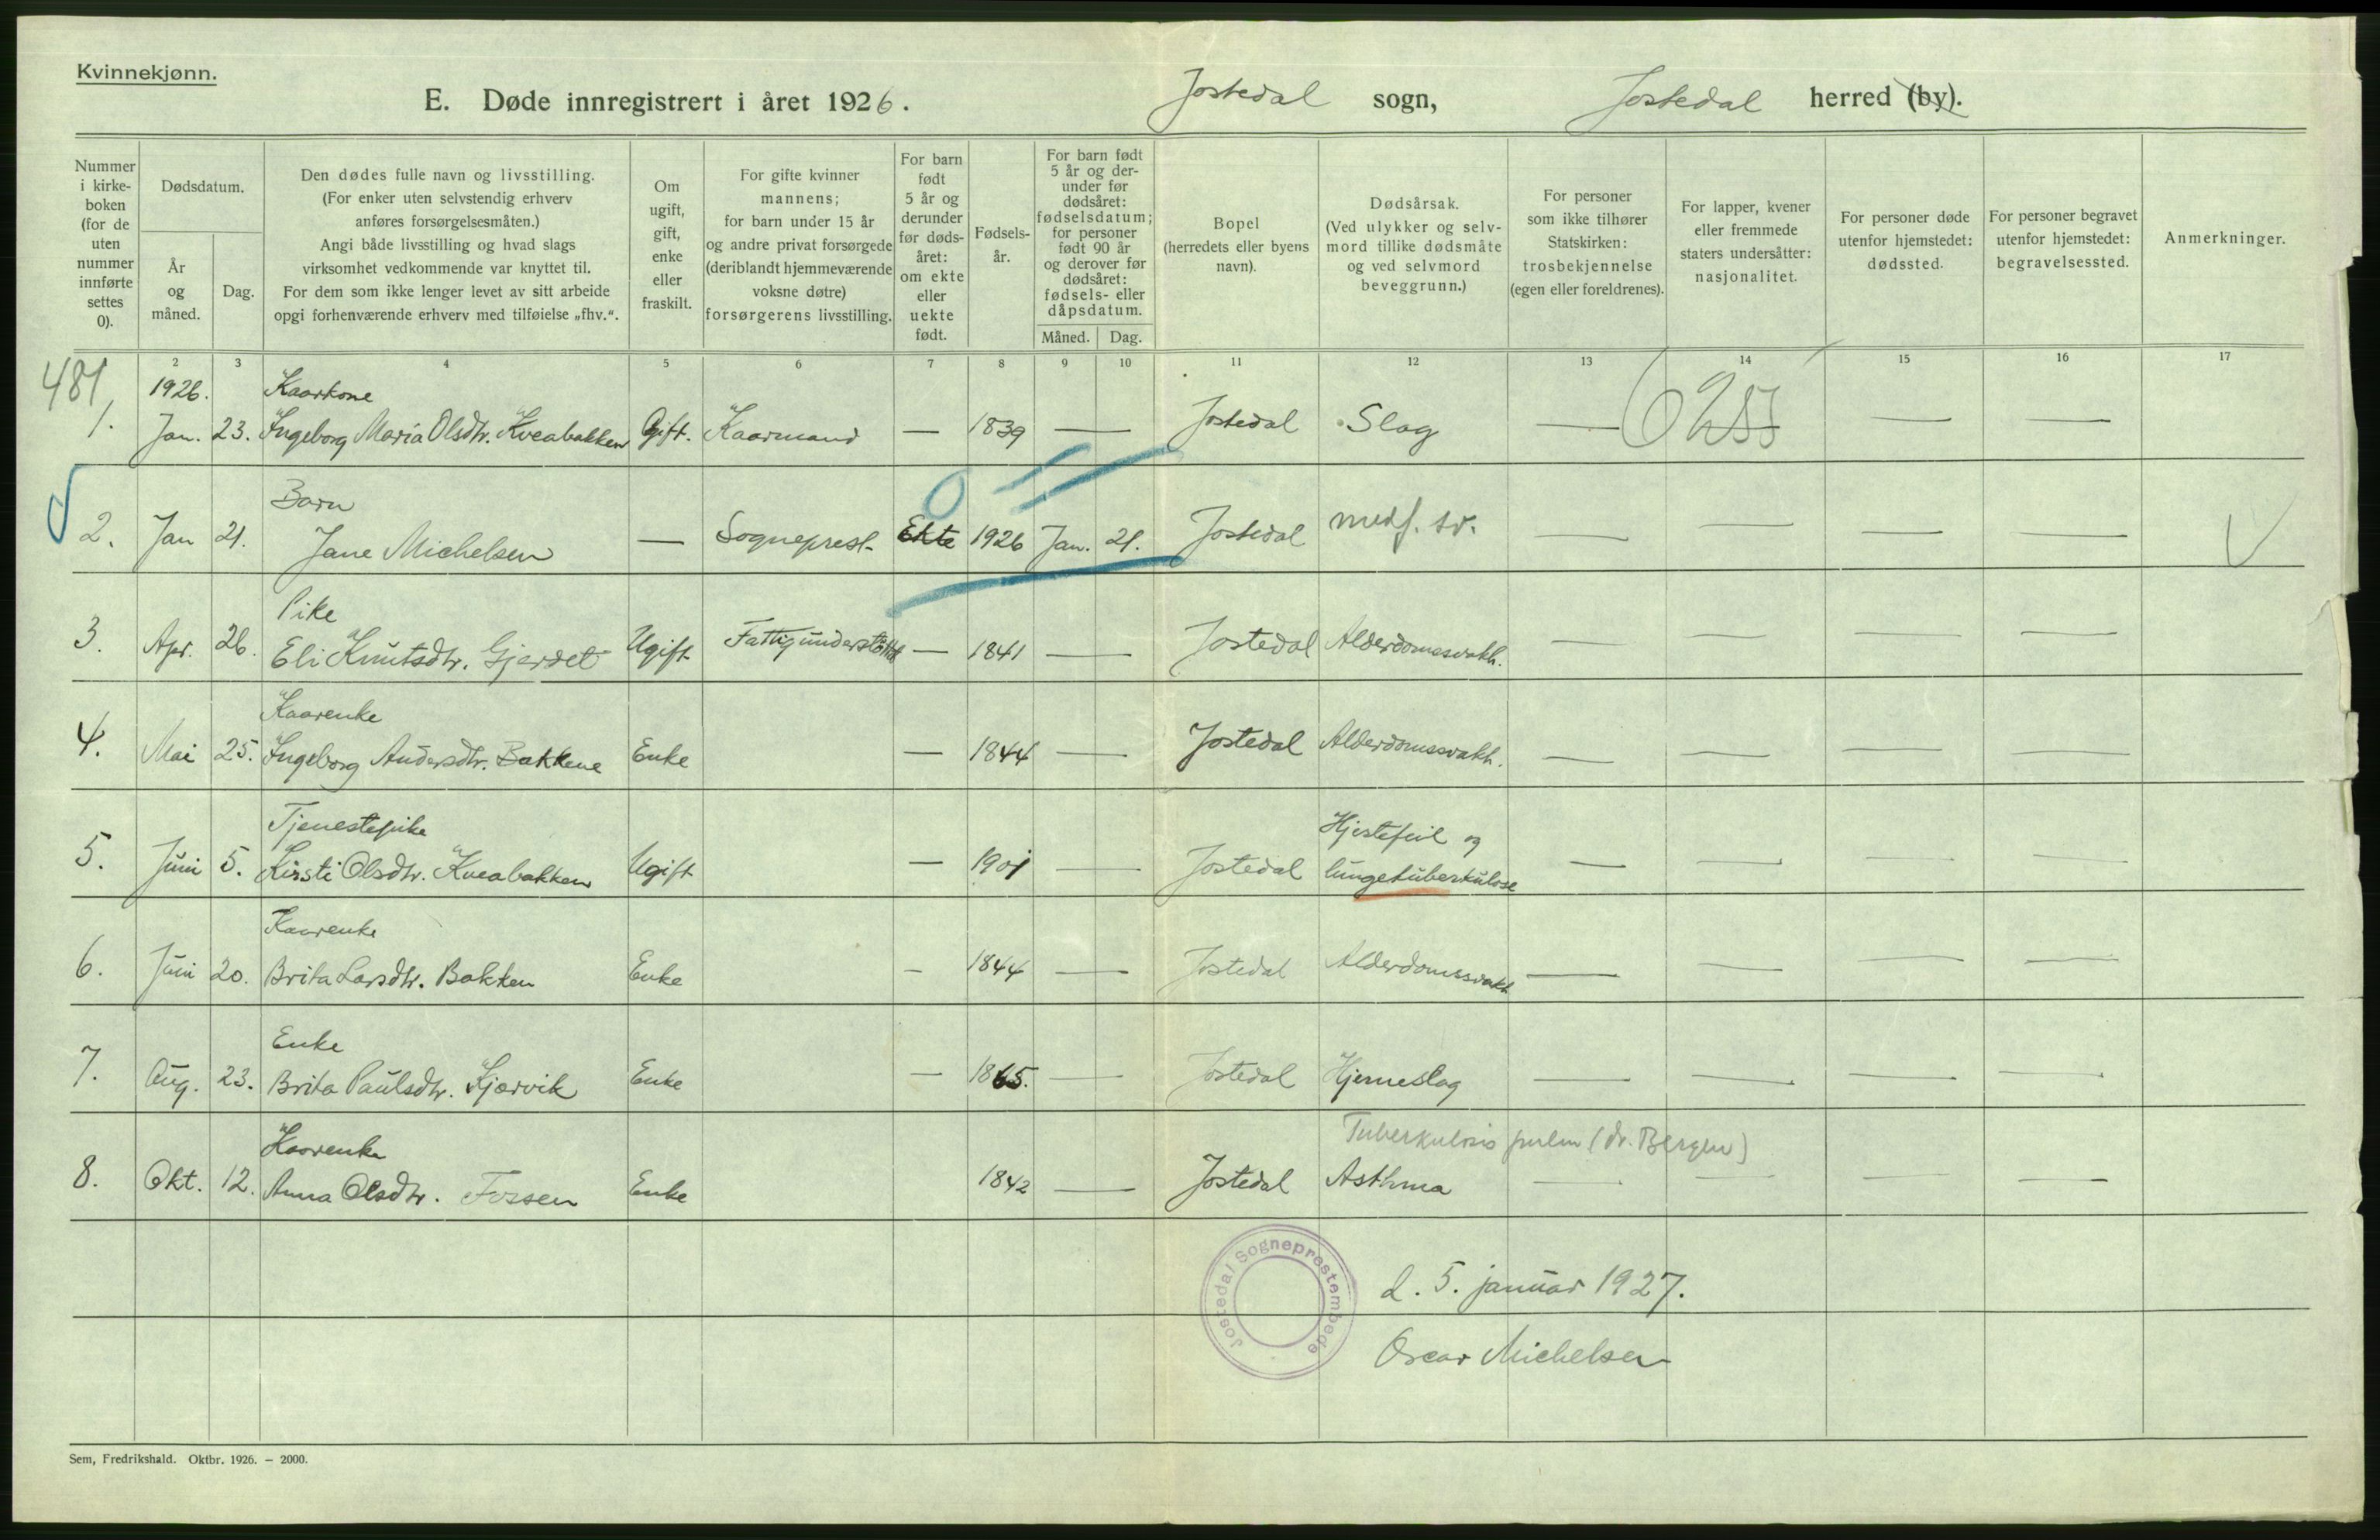 Kvinnekjønn.
E. Døde innregistrert i året 1926. Jostedal sogn, Jostedal herred (by).
Nummer i kirke-boken (for de uten nummer innførte settes 0).
Dødsdatum.
År og måned.
Dag.
Den dødes fulle navn og livsstilling.
(For enker uten selvstendig erhverv
anføres forsørgelsesmåten.)
Angi både livsstilling og hvad slags
virksomhet vedkommende var knyttet til.
For dem som ikke lenger levet av sitt arbeide
opgi forhenværende erhverv med tilføielse „fhv.“.
Om ugift, gift, enke eller fraskilt.
For gifte kvinner
mannens;
for barn under 15 år
og andre privat forsørgede
(deriblandt hjemmeværende
voksne døtre)
forsørgerens livsstilling.
For barn født 5 år og derunder før døds-året: om ekte eller uekte født.
Fødsels-år.
For barn født 5 år og der-under før dødsåret: fødselsdatum; for personer født 90 år og derover før dødsåret: fødsels- eller dåpsdatum.
Måned. Dag.
Bopel
(herredets eller byens
navn).
Dødsårsak.
(Ved ulykker og selv-
mord tillike dødsmåte
og ved selvmord
beveggrunn.)
For personer
som ikke tilhører
Statskirken:
trosbekjennelse
(egen eller foreldrenes).
For lapper, kvener
eller fremmede
staters undersåtter:
nasjonalitet.
For personer døde
utenfor hjemstedet:
dødssted.
For personer begravet
utenfor hjemstedet:
begravelsessted.
Anmerkninger.
2 3 4 5 6 7 8 9 10 11 12 13 14 15 16 17
481 1926. Kaarkone
1. Jan. 23. Ingeborg Maria Olsdtr. Kveabakken Gift. Kaarmand — 1839 — Jostedal Slag — — —
Barn
2. Jan 21. Jane Michelsen — Sogneprest Ekte 1926 Jan. 21. Jostedal medf. sv. — — — —
Pike
3. Apr. 26. Eli Knutsdtr. Gjerdet Ugift Fattigunderstöttet — 1841 — Jostedal Alderdomssvakh. — — — —
Kaarenke
4. Mai 25. Ingeborg Andersdtr. Bakkene Enke — 1844 — Jostedal Alderdomssvakh. — — — —
Tjenestepike Hjertefeil og
5. Juni 5. Kirsti Olsdtr. Kveabakken Ugift — 1901 — Jostedal lungetuberkulose — — — —
Kaarenke
6. Juni 20. Brita Larsdtr. Bakken Enke — 1844 — Jostedal Alderdomssvakh — — — —
Enke
7. Aug. 23. Brita Paulsdtr. Kjærvik Enke — 1865. — Jostedal Hjerneslag — — — —
Kaarenke Tuberkulosis pulm (dr. Bergen)
8. Okt. 12. Anna Olsdtr. Fossen Enke 1842 — Jostedal Asthma — — — —
Jostedal Sogneprestembede
d. 5. januar 1927.
Oscar Michelsen
Sem, Fredrikshald. Oktbr. 1926. – 2000.